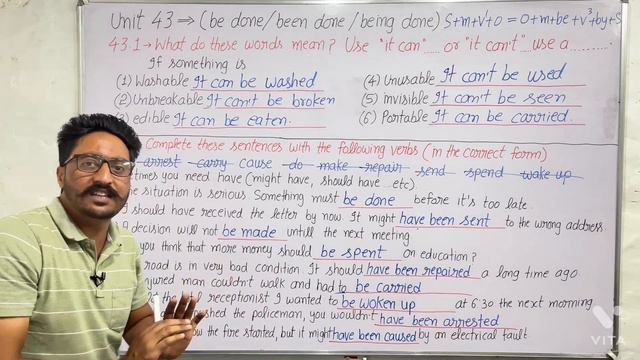 Unit 43 ⇒ (be done/been done/being done) S+m+V+O = O+m+be+V³+by+S
43.1 → What do these words mean? Use "it can".... or "it can't" use a..........
If something is
(1) Washable It can be washed (4) Unusable It can't be used
(2) Unbreakable It can't be broken (5) invisible It can't be seen
(3) edible It can be eaten. (6) Portable It can be carried.
Complete these sentences with the following verbs (in the correct form)
arrest carry cause do make repair send spend wake up
times you need have (might have, should have etc).
e situation is serious. Something must be done before it's too late
should have received the letter by now. It might have been sent to the wrong address.
decision will not be made untill the next meeting
you think that more money should be spent on education?
road is in very bad condition. It should have been repaired a long time ago.
injured man couldn't walk and had to be carried
receptionist I wanted to be woken up at 6:30 the next morning
the policeman, you wouldn't have been arrested
how the fire started, but it might have been caused by an electrical fault
VITA